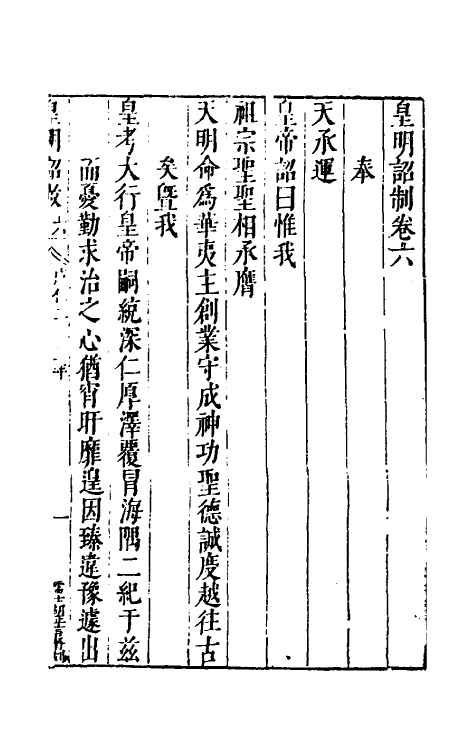 皇明詔制卷六
奉
天承運
皇帝詔曰惟我
祖宗聖聖相承膺
天明命爲華夷主創業守成神功聖德誠度越往古
矣曁我
皇考大行皇帝嗣統深仁厚澤覆冒海隅二紀于玆
而憂勤求治之心猶宵旰靡遑因臻違豫遽出
皇明詔敕 六 一